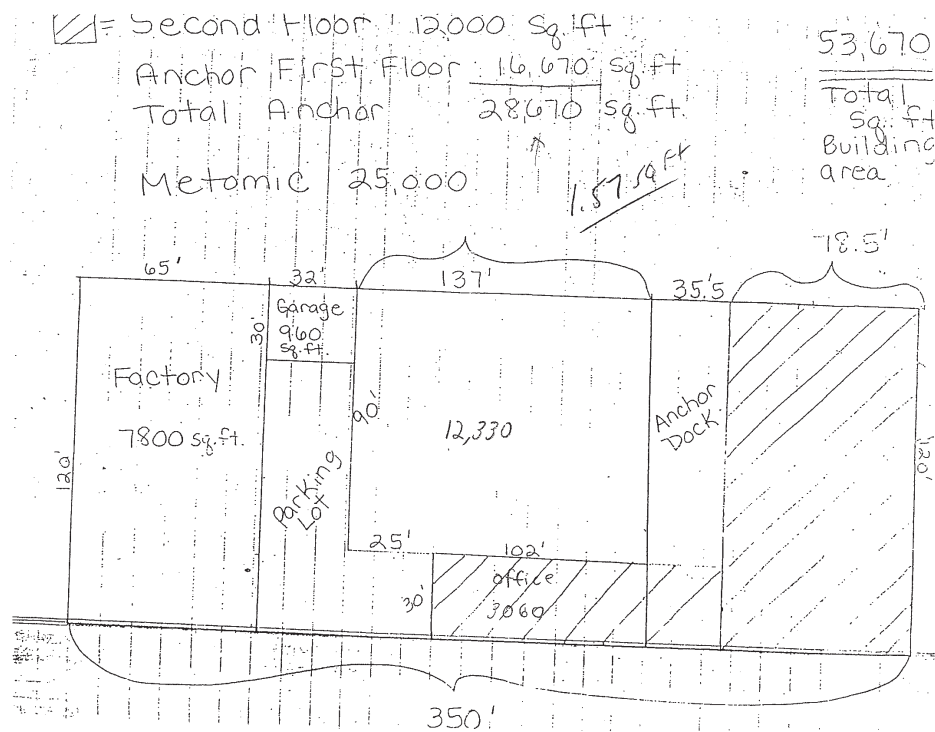 = Second Floor 12,000 Sq. ft
Anchor First Floor 16,670 sq. ft
Total Anchor 28,670 sq. ft.
Metomic 25,000
1.57 sq ft
53,670
Total
Sq. ft
Building
area
65'
32'
137'
35.5'
78.5'
Garage
960
sq. ft.
30'
Factory
7800 sq. ft.
120'
90'
12,330
Anchor
Dock
120'
Parking
Lot
25'
102'
office
3,060
30'
350'